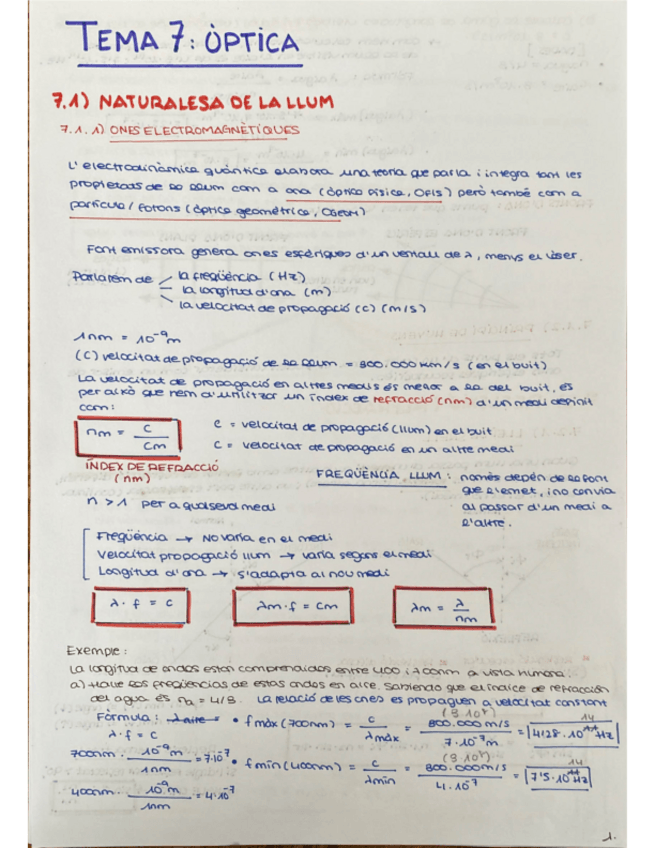 TEMA 7: ÒPTICA
7.1) NATURALESA DE LA LLUM
7.1.1) ONES ELECTROMAGNÈTIQUES
L'electrodinàmica quàntica elabora una teoria que parla i integra tant les
propietats de la llum com a ona (òptica física, OFIS) però també com a
partícula / fotons (òptica geomètrica, OGEOM)
Font emissora genera ones esfèriques d'un ventall de λ, menys el làser.
Parlarem de
la freqüència (Hz)
la longitud d'ona (m)
la velocitat de propagació (c) (m/s)
1nm = 10⁻⁹m
(c) velocitat de propagació de la llum = 300.000 km/s (en el buit)
La velocitat de propagació en altres medis és menor a la del buit, és
per això que hem d'utilitzar un índex de refracció (nm) d'un medi definit
com:
nm = c / cm
c = velocitat de propagació (llum) en el buit
c = velocitat de propagació en un altre medi
ÍNDEX DE REFRACCIÓ
(nm)
n > 1 per a qualsevol medi
FREQÜÈNCIA LLUM: només depèn de la font
que l'emet, i no canvia
al passar d'un medi a
l'altre.
Freqüència → No varia en el medi
Velocitat propagació llum → varia segons el medi
Longitud d'ona → s'adapta al nou medi
λ · f = c
λm · f = cm
λm = λ / nm
Exemple:
La longitud de ondas estan comprendidos entre 400 i 700nm a vista humana:
a) Halle las freqüències de estas ondas en aire. Sabiendo que el índice de refracción
del agua és na = 4/3. La relació de les ones es propaguen a velocitat constant
Fórmula: λaire =
λ · f = c
• f màx (700nm) = c / λmàx = 300.000 m/s (3·10⁸) / 7·10⁻⁷m = 4'28·10¹⁴ Hz
700nm · 10⁻⁹m / 1nm = 7·10⁻⁷
• f mín (400nm) = c / λmín = 300.000 m/s (3·10⁸) / 4·10⁻⁷ = 7'5·10¹⁴ Hz
400nm · 10⁻⁹m / 1nm = 4·10⁻⁷
1.